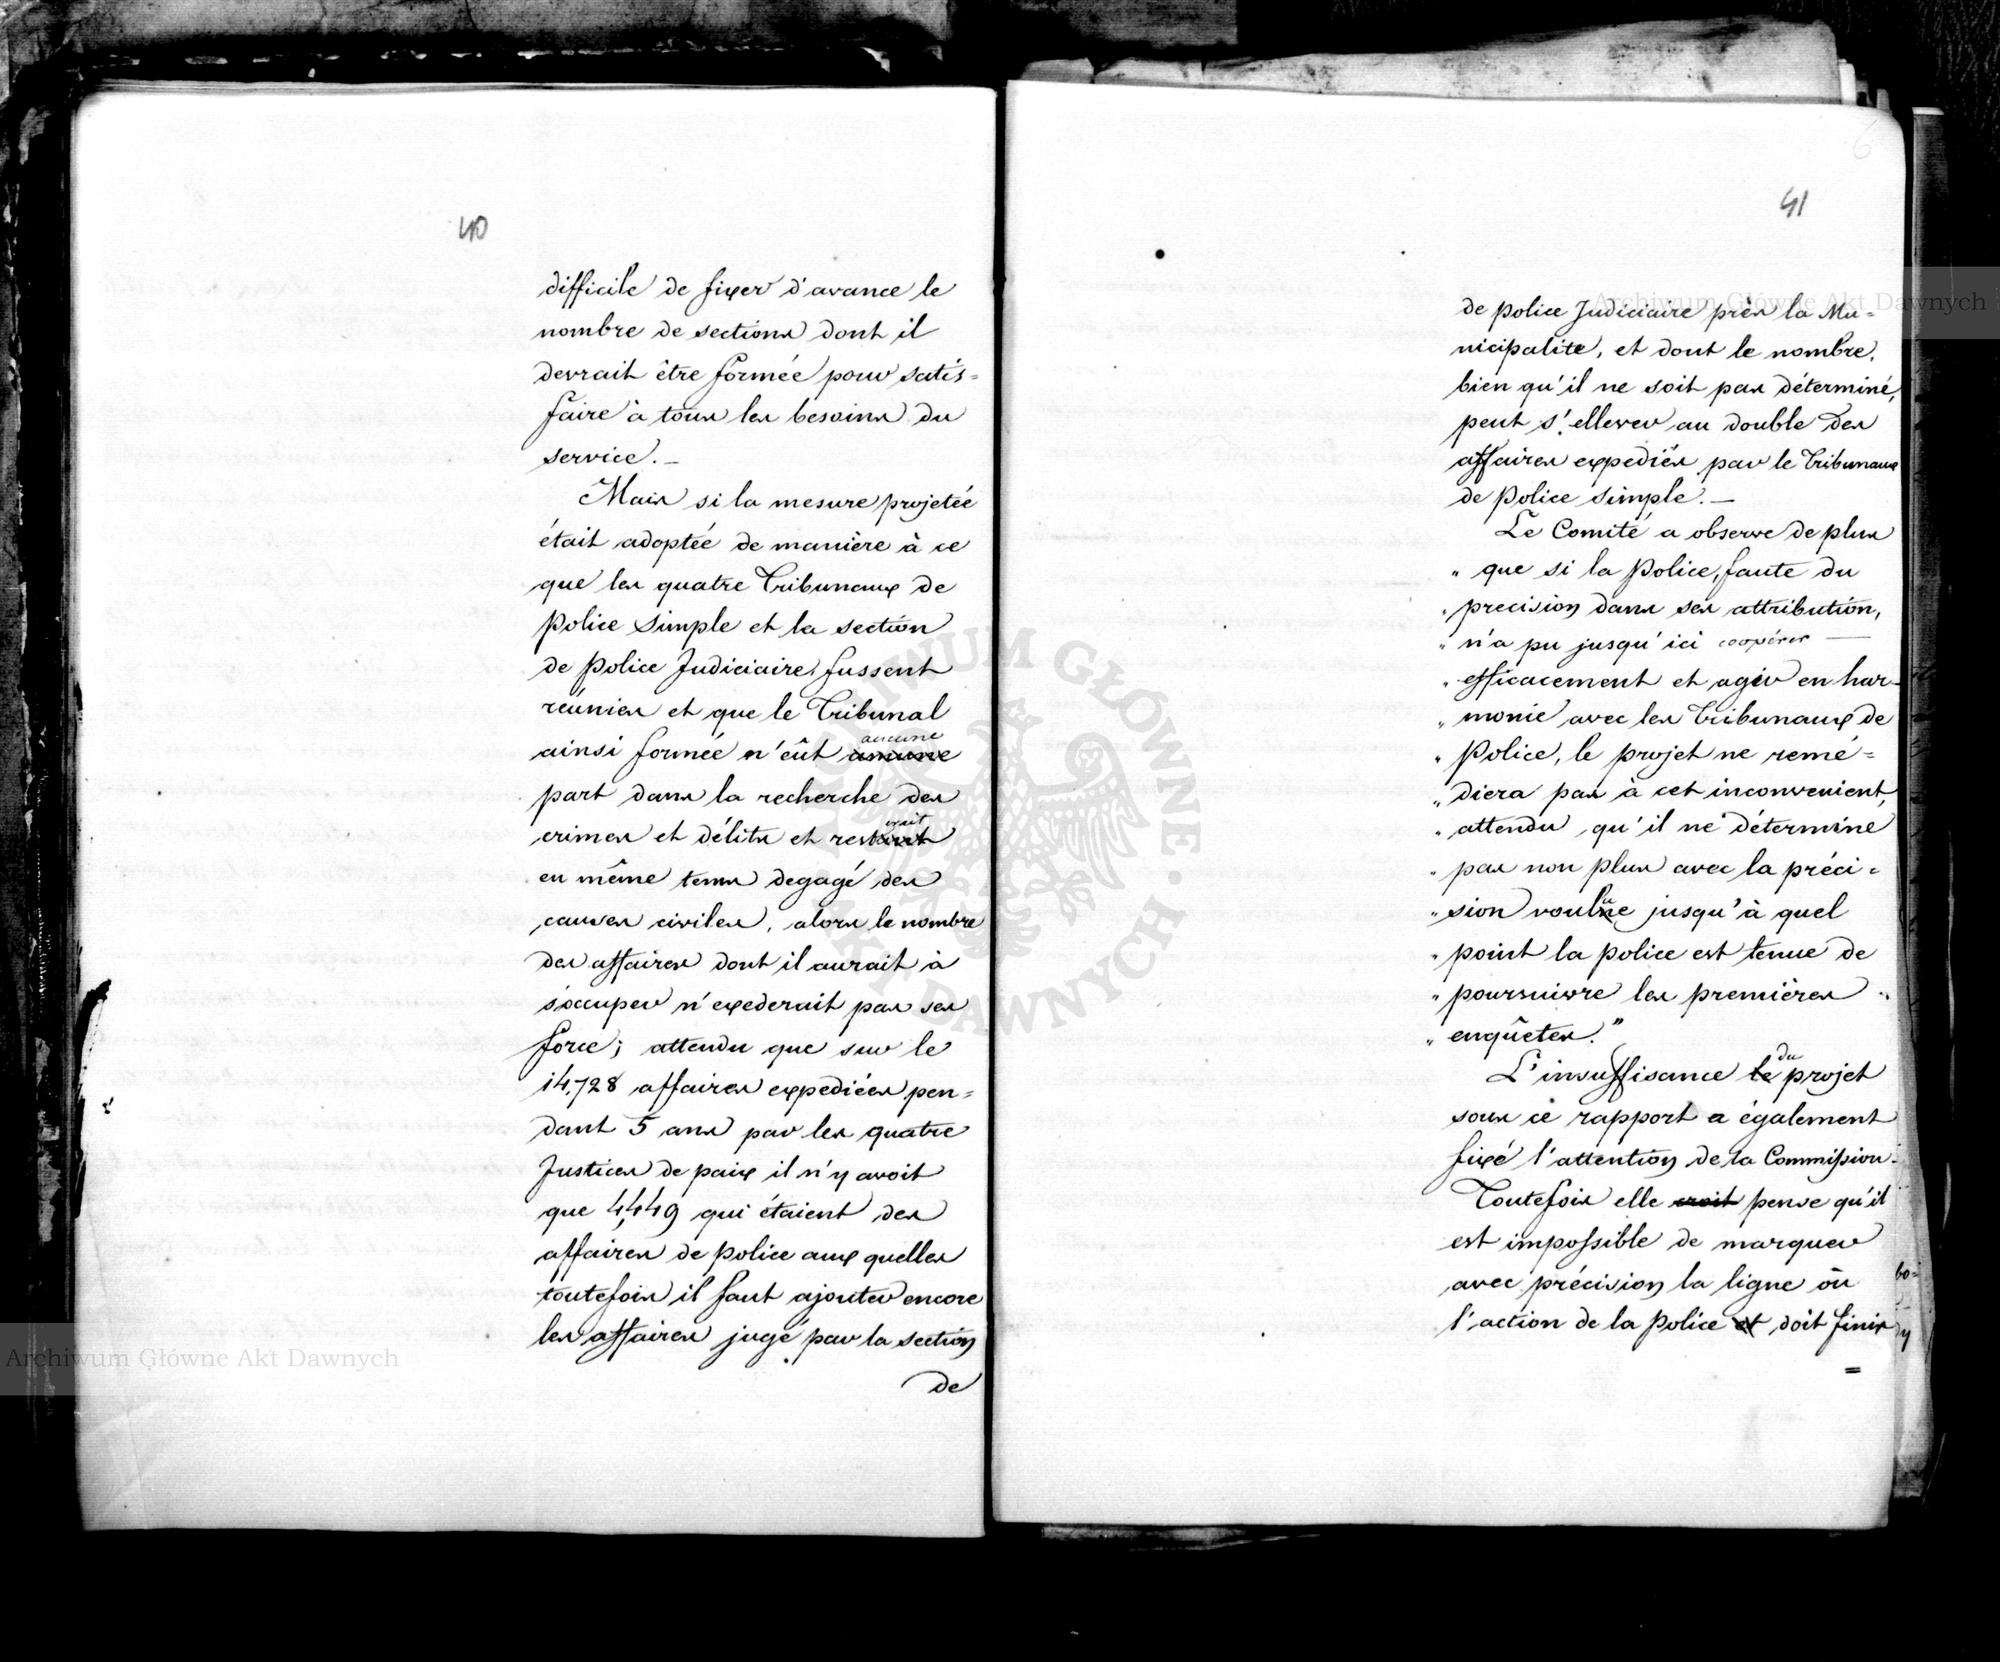 40
difficile de fixer d'avance le
nombre de sections dont il
devrait être formée pour satis-
faire à tous les besoins du
service. _
Mais si la mesure projetée
était adoptée de manière à ce
que les quatre Tribunaux de
Police Simple et la section
de Police Judiciaire, fussent
réunies et que le Tribunal
aucune
ainsi formée n'eût
part dans la recherche des
crimes et délits et resterait
en même tems degagé des
causes civiles, alors le nombre
des affaires dont il aurait à
s'occuper n'exederait pas ses
force; attendu que sur le
14,728 affaires expediées pen-
dant 5 ans par les quatre
Justices de paix il n'y avoit
que 4,449 qui étaient des
affaires de Police aux quelles
toutefois il faut ajouter encore
les affaires jugé par la section
de
41
de Police Judiciaire près la Mu-
nicipalite, et dont le nombre,
bien qu'il ne soit pas déterminé,
peut s'ellever au double des
affaires expediés par le Tribunaux
de Police simple. _
Le Comité a observe de plus
" que si la Police, faute du
" precision dans ses attribution,
" n'a pu jusqu'ici coopérer —
" efficacement et agir en har-
" monie avec les Tribunaux de
" Police, le projet ne remé-
" diera pas à cet inconvenient,
" attendu qu'il ne détermine
" pas non plus avec la préci-
" sion voulue jusqu'à quel
" point la police est tenue de
" poursuivre les premières
" enquêtes."
du
L'insuffisance le projet
sous ce rapport a également
fixé l'attention de la Commission.
Toutefois elle croit pense qu'il
est impossible de marquer
avec précision la ligne où
l'action de la Police et doit finir
=
6
Archiwum Główne Akt Dawnych
Archiwum Główne Akt Dawnych
ARCHIWUM GŁÓWNE AKT DAWNYCH